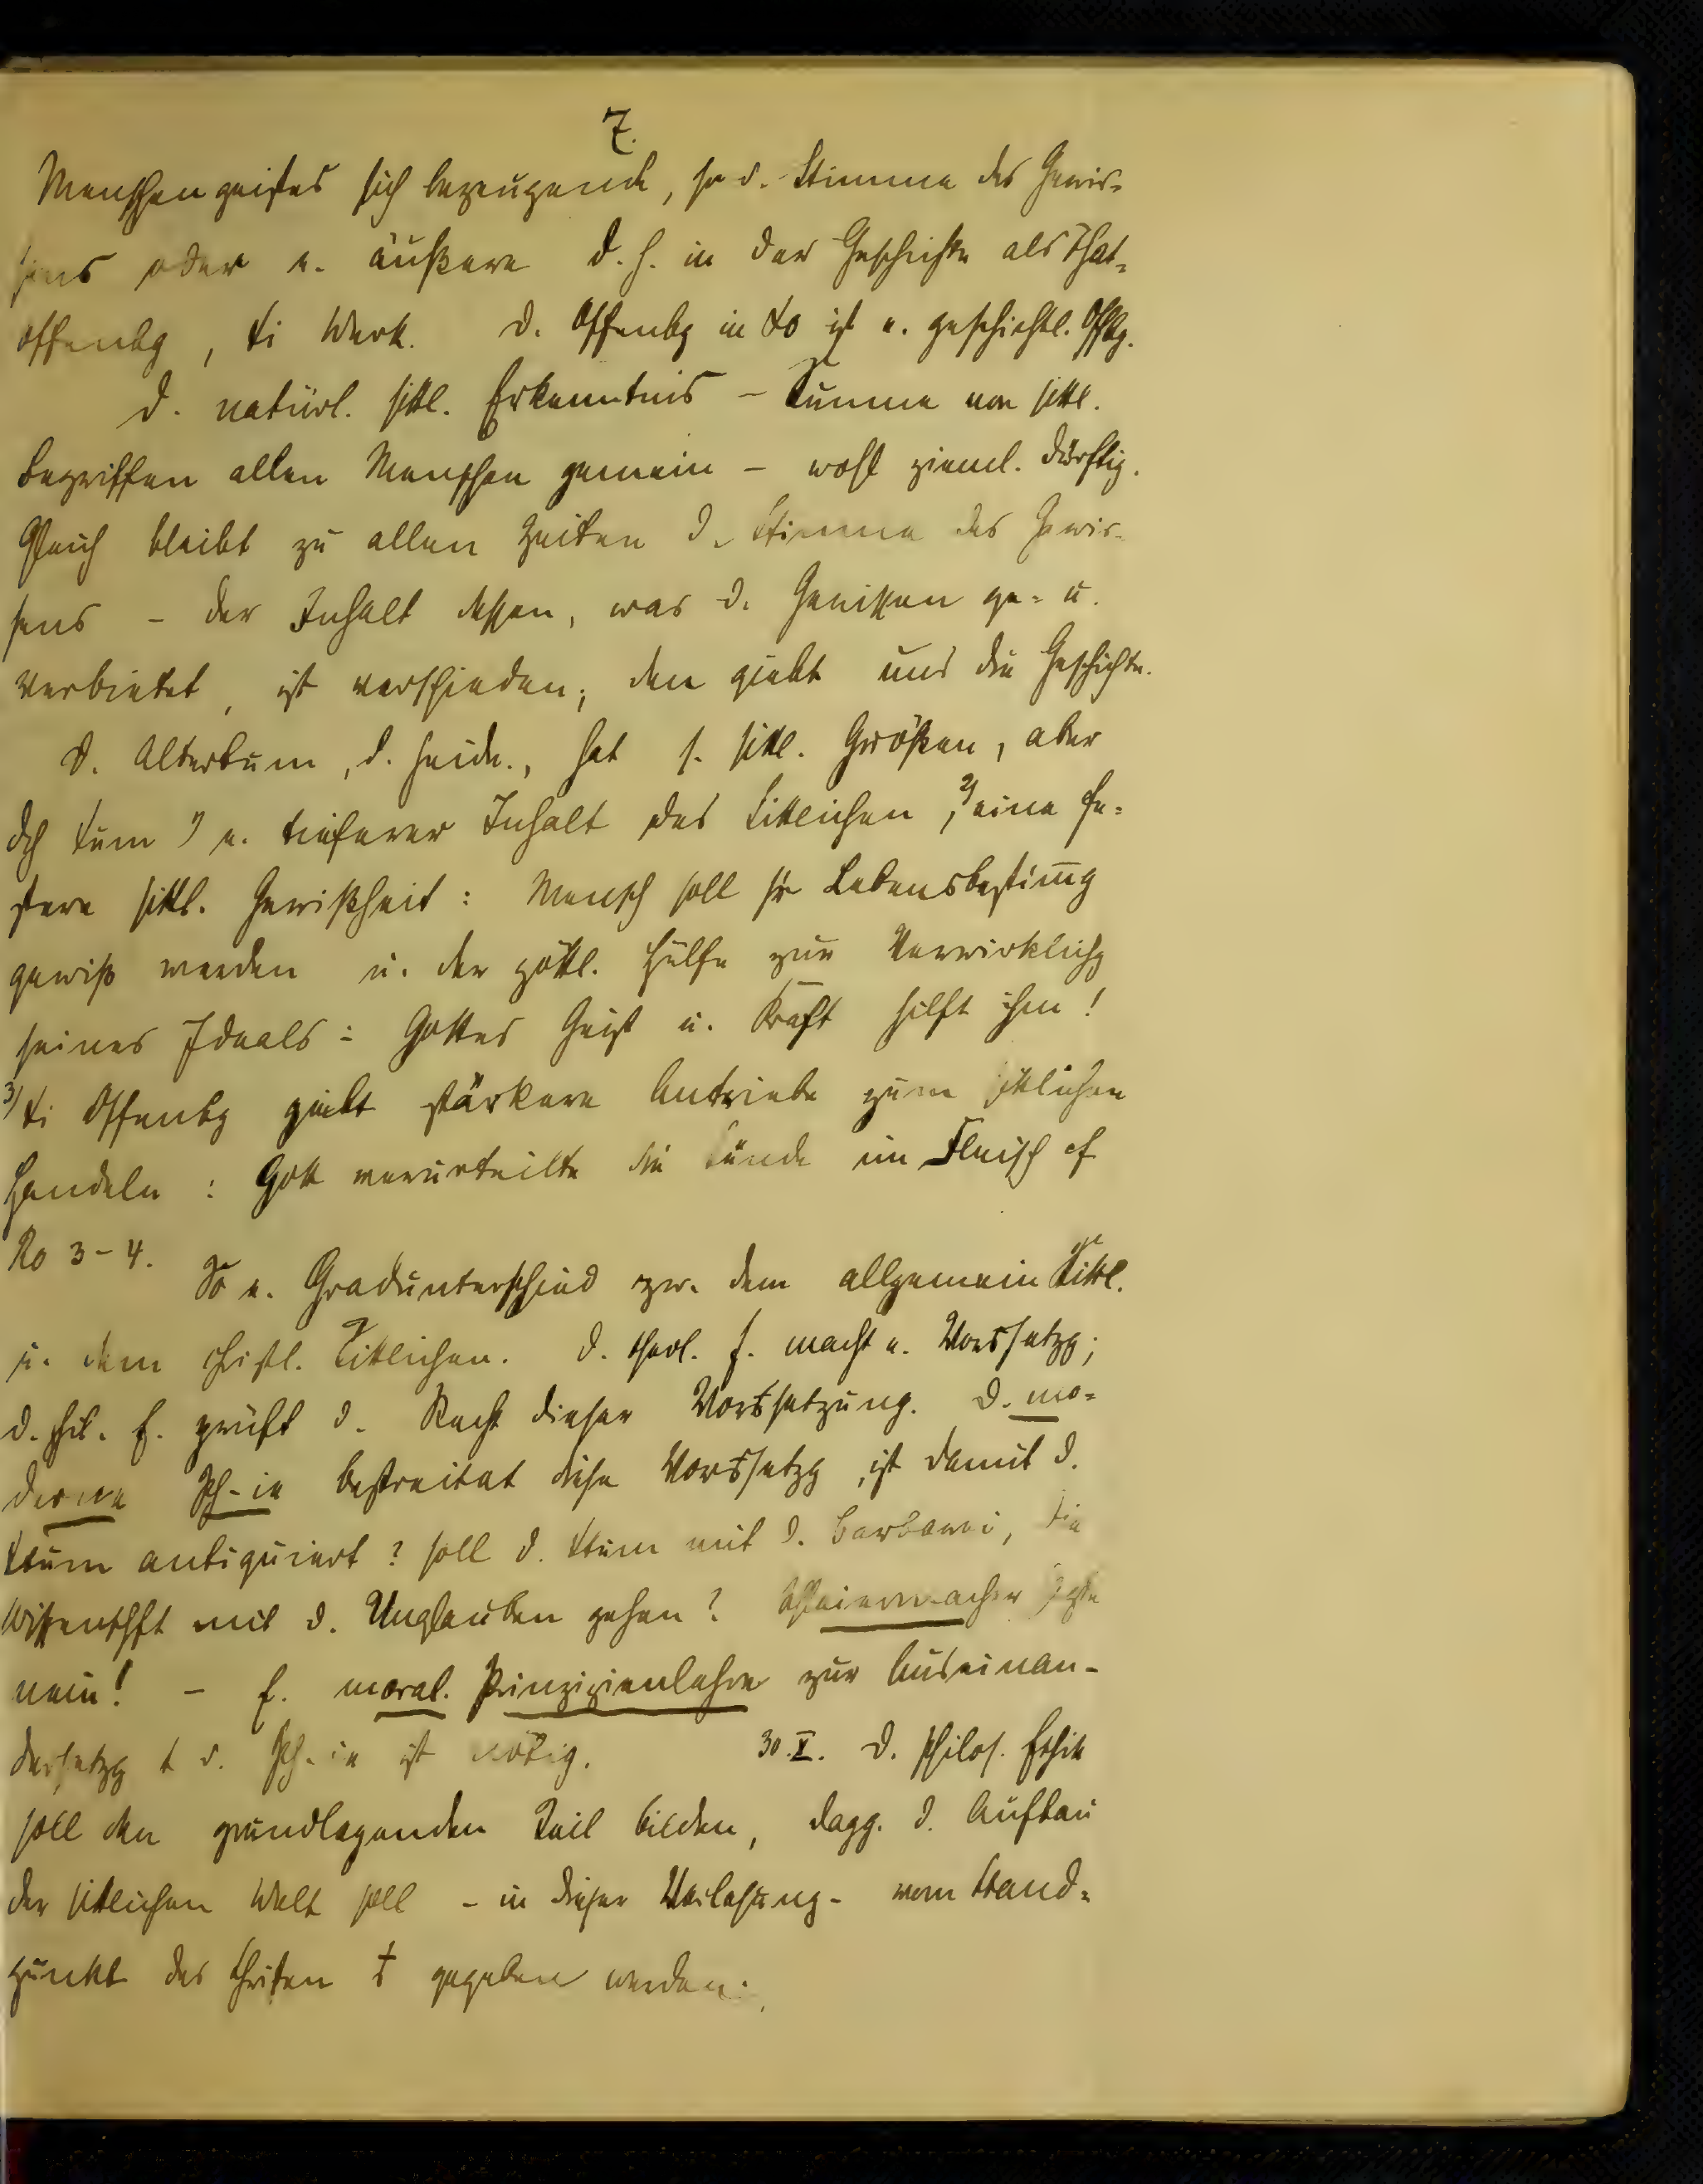 7.
Menschengeistes sich bezeugende, so d. Stimme des Gewis-
sens oder e. äußere d. h. in der Geschichte als That-
offenbg, Werk. D. Offenbg in Xo ist e. geschichtl. Offbg.
D. natürl. sittl. Erkenntnis – Summe von sittl.
Begriffen allen Menschen gemein – wohl zieml. dürftig.
Gleich bleibt zu allen Zeiten d. Stimme des Gewis-
sens – der Inhalt dessen, was d. Gewissen ge- u.
verbietet, ist verschieden; den giebt uns die Geschichte.
D. Altertum, d. heidn., hat s. sittl. Größen, aber
dch 1) e. tieferer Inhalt des Sittlichen, 2) eine fe-
stere sittl. Gewißheit: Mensch soll sr Lebensbestimg
gewiß werden u. der göttl. Hülfe zur Verwirklichg
seines Ideals: Gottes Geist u. Kraft hilft ihm!
3) Offenbg giebt stärkere Antriebe zum sittlichen
Handeln: Gott verurteilte die Sünde im Fleisch cf
Ro 3-4. So e. Gradunterschied zw. dem allgemein Sittl.
u. dem christl. Sittlichen. D. theol. E. macht e. Vorssetzg;
d. phil. E. prüft d. Recht dieser Vorssetzung. D. mo-
derne Ph-ie bestreitet diese Vorssetzg, ist damit d.
Xtum antiquiert? soll d. Xtum mit d. Barbarei, die
Wissenschft mit d. Unglauben gehen? Schleiermacher sagte
nein! – E. moral. Prinzipienlehre zur Auseinan-
dersetzg d. Ph-ie ist nötig. 30.X. D. philos. Ethik
soll den grundlegenden Teil bilden, dagg. d. Aufbau
der sittlichen Welt soll – in dieser Vorlesung – vom Stand-
punkt des Christen gegeben werden.